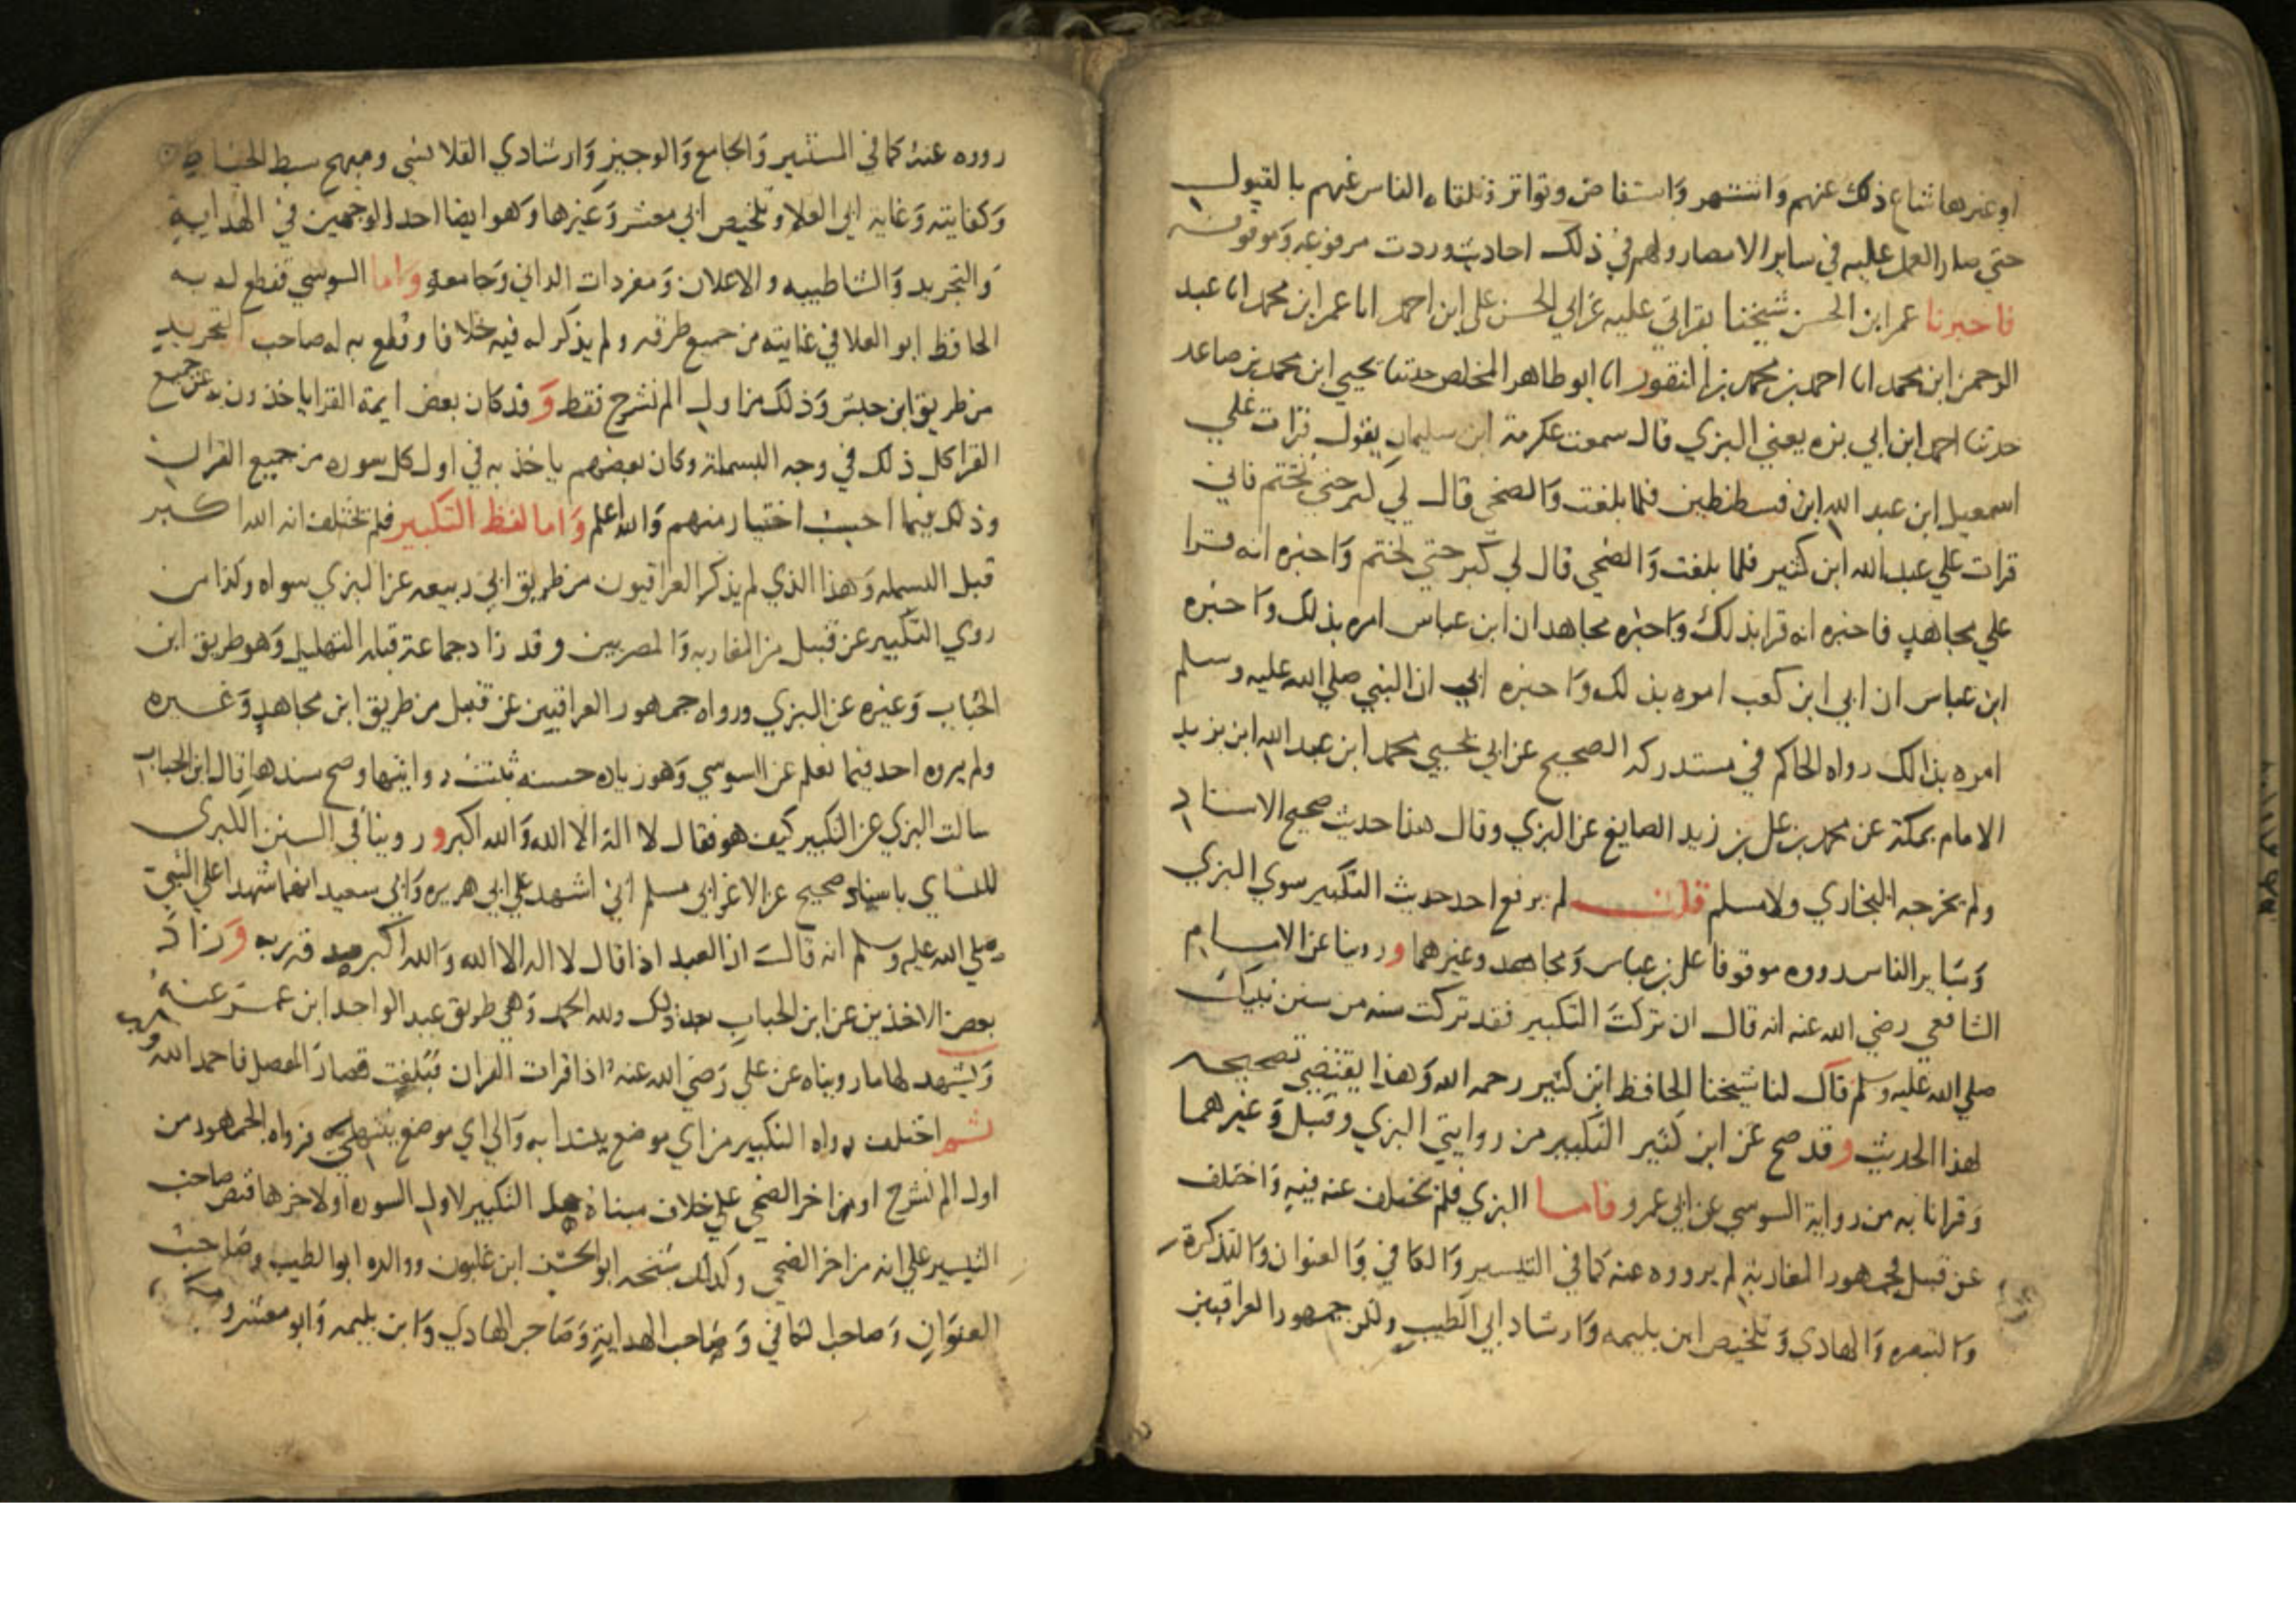 او غيرها شاع ذلك عنهم وانتشهر واستفاض وتواتر وتلقاه الناس عنهم بالقبول
حتي صار العمل عليه في ساير الامصار ولهم في ذلك احاديث وردت مرفوعه وموقوفه
فاخبرنا عمر ابن الحسن شيخنا بقراتي عليه عن ابي الحسن علي ابن احمد انا عمر ابن محمد انا عبد
الرحمن ابن محمد انا احمد بن محمد بن النقور انا ابو طاهر المخلص حدثنا يحيي ابن محمد بن صاعد
حدثنا احمد ابن ابي بزه يعني البزي قال سمعت عكرمة ابن سليمان يقول قرات علي
اسمعيل ابن عبد الله ابن قسطنطين فلما بلغت والضحي قال لي كبر حتي تختم فاني
قرات علي عبد الله ابن كثير فلما بلغت والضحي قال لي كبر حتي تختم واخبره انه قرا
علي مجاهد فاخبره انه قرا بذلك واخبره مجاهد ان ابن عباس امره بذلك واخبره
ابن عباس ان ابي ابن كعب امره بذلك واخبره ابي ان النبي صلي الله عليه وسلم
امره بذالك رواه الحاكم في مستدركه الصحيح عن ابي يحيي محمد ابن عبد الله ابن يزيد
الامام بمكة عن محمد بن علي بن زيد الصايغ عن البزي وقال هذا حديث صحيح الاسناد
ولم يخرجه البخاري ولا مسلم قلت لم يرفع احد حديث التكبير سوي البزي
وساير الناس رووه موقوفا علي بن عباس ومجاهد وغيرهما وروينا عن الامام
الشافعي رضي الله عنه انه قال ان تركت التكبير فقد تركت سنه من سنن نبيك
صلي الله عليه وسلم قال لنا شيخنا الحافظ ابن كثير رحمه الله وهذا يقتضي تصحيحه
لهذا الحديث وقد صح عن ابن كثير التكبير من روايتي البزي وقنبل وغيرهما
وقرانا به من رواية السوسي عن ابي عمرو فاما البزي فلم يختلف عنه فيه واختلف
عن قنبل فجمهور المغاربة لم يرووه عنه كما في التيسير والكافي والعنوان والتذكرة
والتبصره والهادي وتلخيص ابن بليمه وارشاد ابي الطيب ولكن جمهور العراقيين
رووه عنه كما في المستنير والجامع والوجيز وارشادي القلانسي ومبهج سبط الخياط
وكفايته وغاية ابي العلا وتلخيص ابي معشر وغيرها وهو ايضا احد الوجهين في الهداية
والتجريد والشاطبيه والاعلان ومفردات الداني وجامعه واما السوسي فقطع له به
الحافظ ابو العلا في غايته من جميع طرقه ولم يذكر له فيه خلافا وقطع به له صاحب التجريد
من طريق ابن حبش وذلك من اول الم نشرح فقط وقد كان بعض ايمة القرا ياخذون به عن جميع
القرا كل ذلك في وجه البسملة وكان بعضهم ياخذ به في اول كل سوره من جميع القران
وذلك فيما احسب اختيار منهم والله اعلم واما لفظ التكبير فلم تختلف انه الله اكبر
قبل البسمله وهذا الذي لم يذكر العراقيون من طريق ابي ربيعه عن البزي سواه وكذا من
روي التكبير عن قنبل من المغاربه والمصريين وقد زاد جماعة قبله التهليل وهو طريق ابن
الحباب وغيره عن البزي ورواه جمهور العراقيين عن قنبل من طريق ابن مجاهد وغيره
ولم يروه احد فيما نعلم عن السوسي وهو زياده حسنه ثبتت روايتها وصح سندها قال ابن الحباب
سالت البزي عن التكبير كيف هو فقال لا اله الا الله والله اكبر وروينا في السنن الكبري
للنساي باسناد صحيح عن الاغر ابي مسلم اني اشهد علي ابي هريره وابي سعيد انهما شهدا علي النبي
صلي الله عليه وسلم انه قال ان العبد اذا قال لا اله الا الله والله اكبر صدقه ربه وزاد
بعض الاخذين عن ابن الحباب بعد ذلك ولله الحمد وهي طريق عبد الواحد ابن عمر عنه
ويشهد لها ما رويناه عن علي رضي الله عنه اذا قرات القران فبلغت قصار المفصل فاحمد الله
وكبر
ثم اختلف رواه التكبير من اي موضع يبتدا به والي اي موضع ينتهي فرواه الجمهور من
اول الم نشرح او من اخر الضحي علي خلاف مبناه هل التكبير لاول السوره او لاخرها فنص صاحب
التيسير علي انه من اخر الضحي وكذلك شيخه ابو الحسن ابن غلبون ووالده ابو الطيب وصاحب
العنوان وصاحب الكافي وصاحب الهداية وصاحب الهادي وابن بليمه وابو معشر ومكي